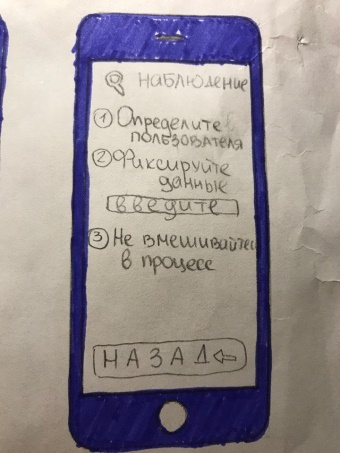 наблюдение
① Определите
пользователя
② Фиксируйте
данные
введите
③ Не вмешивайтесь
в процесс
НАЗАД